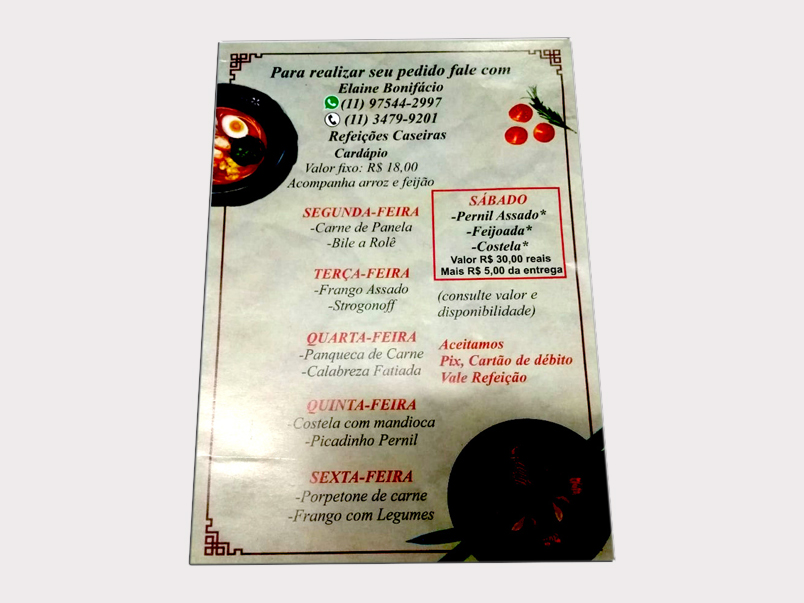 Para realizar seu pedido fale com
Elaine Bonifácio
(11) 97544-2997
(11) 3479-9201
Refeições Caseiras
Cardápio
Valor fixo: R$ 18,00
Acompanha arroz e feijão
SEGUNDA-FEIRA
-Carne de Panela
-Bile a Rolê
TERÇA-FEIRA
-Frango Assado
-Strogonoff
QUARTA-FEIRA
-Panqueca de Carne
-Calabreza Fatiada
QUINTA-FEIRA
-Costela com mandioca
-Picadinho Pernil
SEXTA-FEIRA
-Porpetone de carne
-Frango com Legumes
SÁBADO
-Pernil Assado*
-Feijoada*
-Costela*
Valor R$ 30,00 reais
Mais R$ 5,00 da entrega
(consulte valor e
disponibilidade)
Aceitamos
Pix, Cartão de débito
Vale Refeição